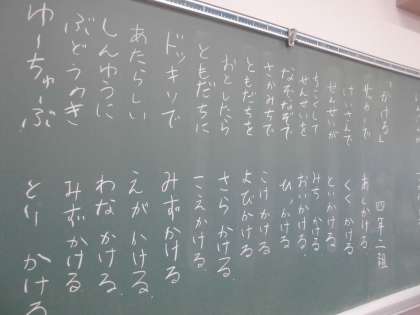 「かける」 四年二組
あしかける
けいさんで くく かける
せんせいが といかける
ちこくして みち かける
せんせいを おいかける
なぞなぞで ひっかける
さかみちで こけかける
ともだちを よびかける
おとしたら さらかける
ともだちに こえかける
ドッキリで みずかける
あたらしい えがかける
しんゆうに わなかける
ぶどうのき みずかける
ゆーちゅーぶ とりかける